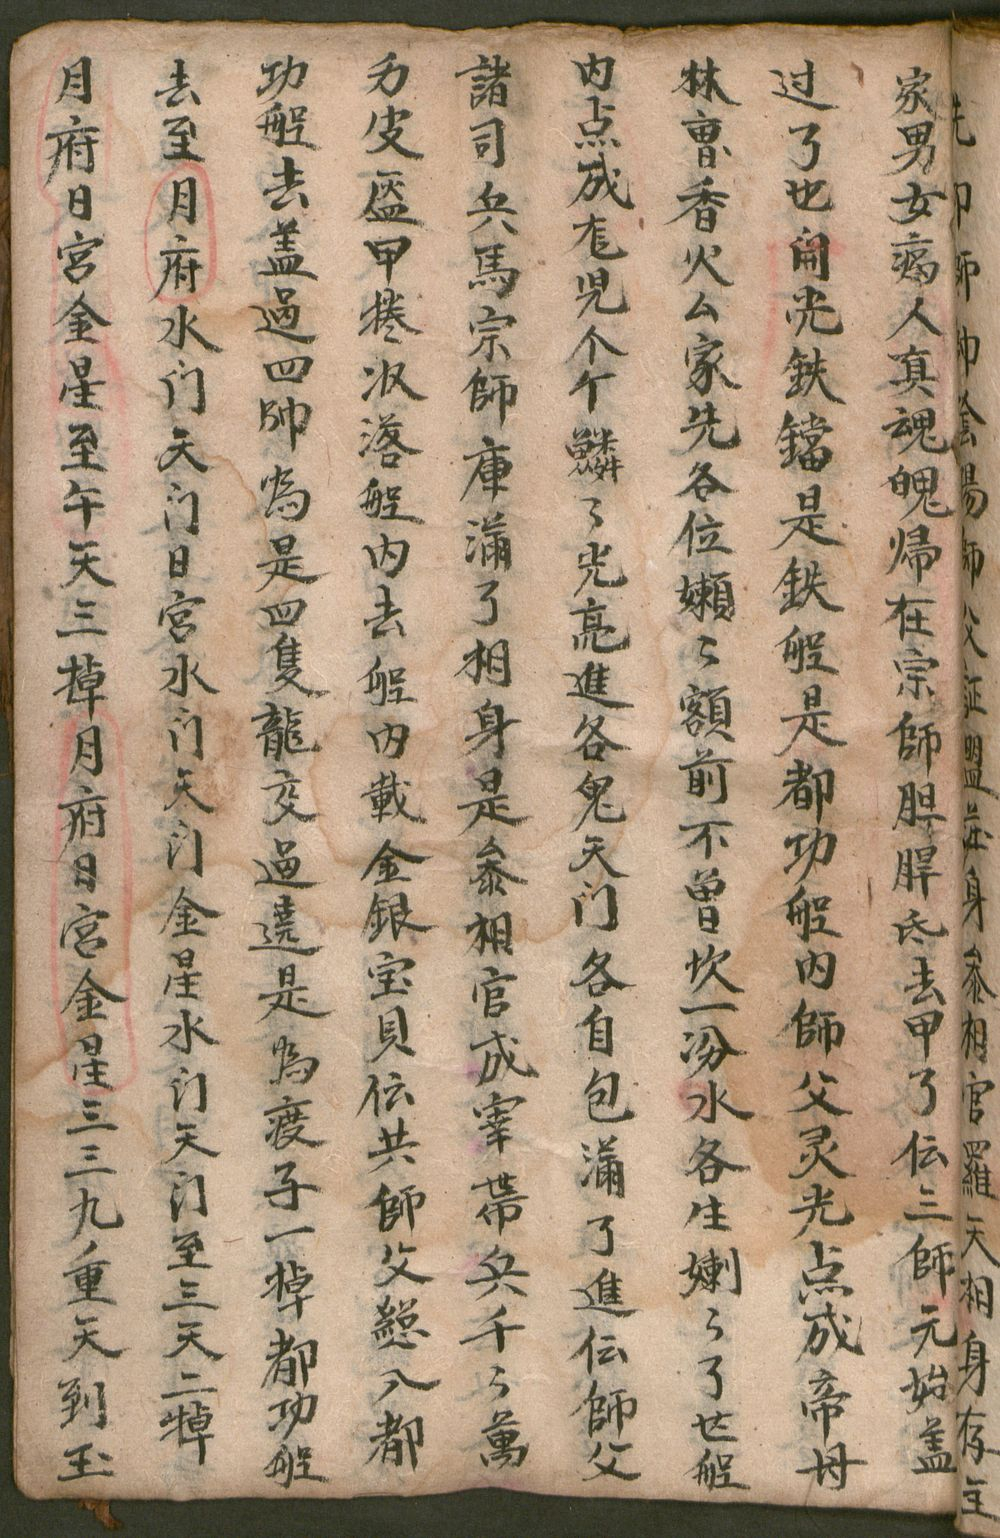 先卩師卩陰陽師父証盟莊身叅相官羅天相身存主
家男女病人真魂魄帰在宗師胆脾氐去甲了伝三師元始盖
过了也開光鉄鐺是鉄船是都功船内師父灵光点成帝毋
林曺香火厶家先各位嬾々額前不曾坎一汾水各生㜊々了世船
内点成㐳児个个鱗々光亮進各鬼天门各自包满了進伝師父
諸司兵馬宗師庫满了相身是叅相官成宰帯兵千々萬
万皮盔甲捲収落船内去船内載金銀宝貝伝共師父䋣入都
功船去盖過四帥為是四隻龍交過遶是為渡子一棹都功船
去至月府水门天门日宮水门天门金星水门天门至三天二棹
月府日宮金星至午天三棹月府日宮金星三三九重天到玉